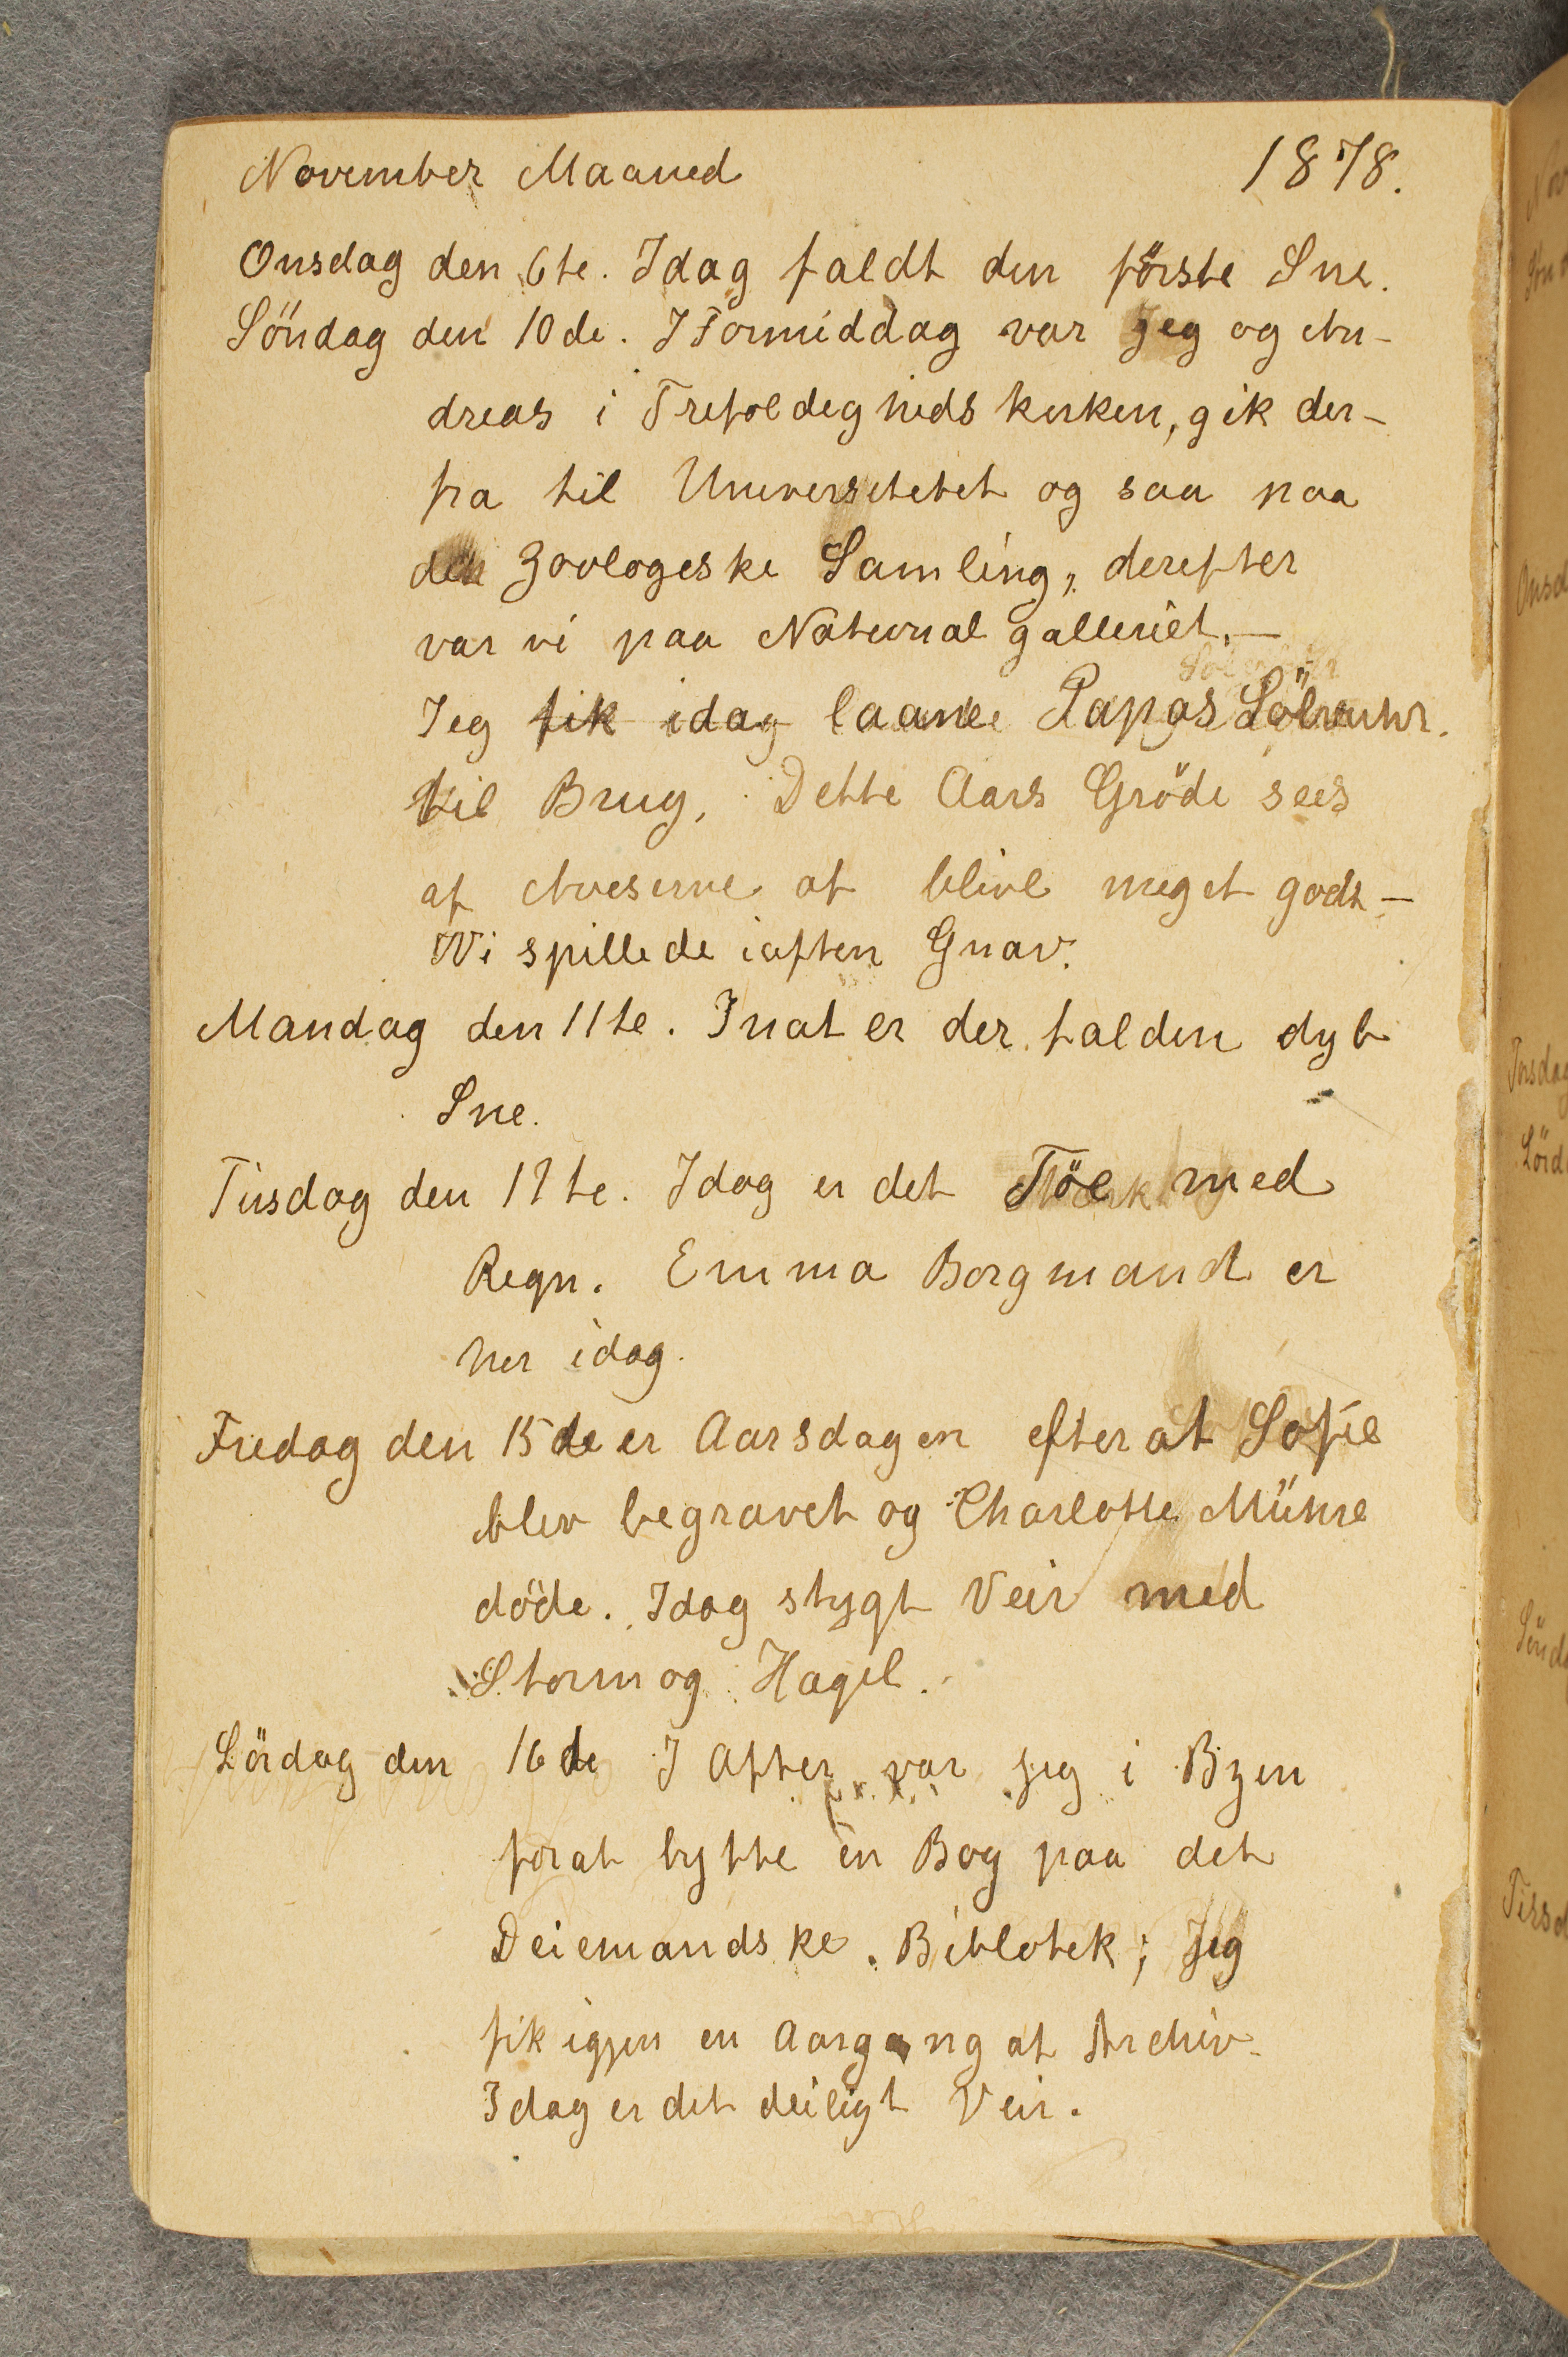 November Maaned 1878.
Onsdag den 6te. Idag faldt den förste Sne.
Söndag den 10de. I Formiddag var Jeg og An-
dreas i Trefoldegheds kirken, gik der-
fra til Universitetet og saa paa
den Zoologeske Samling, derefter
var vi paa National galleriet. —
Jeg fik idag laane Papas Sölvuhr.
til Brug. Dette Aars Gröde sees
af Aviserne at blive meget godt —
Vi spillede iaften Gnav.
Mandag den 11te. Inat er der falden dyb
Sne.
Tirsdag den 12te. Idag er det Töe med
Regn. Emma Borgmand er
her idag.
Fredag den 15de er Aarsdagen efter at Sofie
blev begravet og Charlotte Mühre
döde. Idag stygt Veir med
Storm og Hagel.
Lördag den 16de I Aften var jeg i Byen
forat bytte en Bog paa det
Deiemandske Biblotek; Jeg
fik igjen en Aargang af Archiv.
Idag er det deiligt Veir.
Onsd
Torsdag
Lörd
Sönd
Tirsd